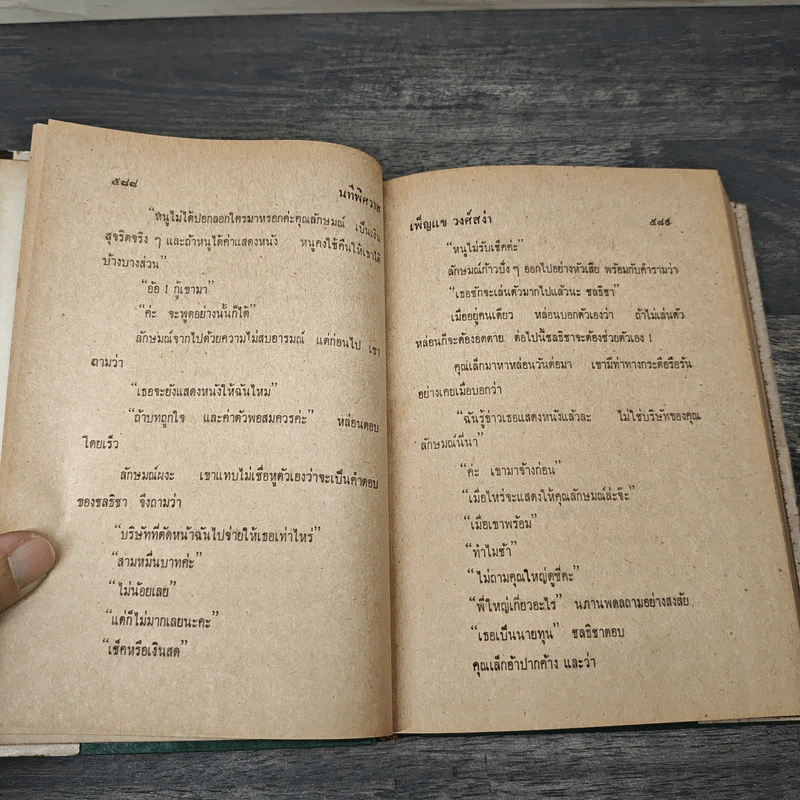 ๕๘๘
นทีพิศวาส
“หนูไม่ได้ปอกลอกใครมาหรอกค่ะคุณลักษมณ์ เป็นเงิน
สุจริตจริง ๆ และถ้าหนูได้ค่าแสดงหนัง หนูคงใช้คืนให้เขาได้
บ้างบางส่วน”
“อ้อ ! กู้เขามา”
“ค่ะ จะพูดอย่างนั้นก็ได้”
ลักษมณ์จากไปด้วยความไม่สบอารมณ์ แต่ก่อนไป เขา
ถามว่า
“เธอจะยังแสดงหนังให้ฉันไหม”
“ถ้าบทถูกใจ และค่าตัวพอสมควรค่ะ” หล่อนตอบ
โดยเร็ว
ลักษมณ์ผงะ เขาแทบไม่เชื่อหูตัวเองว่าจะเป็นคำตอบ
ของชลธิชา จึงถามว่า
“บริษัทที่ตัดหน้าฉันไปจ่ายให้เธอเท่าไหร่”
“สามหมื่นบาทค่ะ”
“ไม่น้อยเลย”
“แต่ก็ไม่มากเลยนะคะ”
“เช็คหรือเงินสด”
เพ็ญแข วงศ์สง่า
๕๘๙
“หนูไม่รับเช็คค่ะ”
ลักษมณ์ก้าวปึ่ง ๆ ออกไปอย่างหัวเสีย พร้อมกับคำรามว่า
“เธอชักจะเล่นตัวมากไปแล้วนะ ชลธิชา”
เมื่ออยู่คนเดียว หล่อนบอกตัวเองว่า ถ้าไม่เล่นตัว
หล่อนก็จะต้องอดตาย ต่อไปนี้ชลธิชาจะต้องช่วยตัวเอง !
คุณเล็กมาหาหล่อนวันต่อมา เขามีท่าทางกระตือรือร้น
อย่างเคยเมื่อบอกว่า
“ฉันรู้ข่าวเธอแสดงหนังแล้วละ ไม่ใช่บริษัทของคุณ
ลักษมณ์นี่นา”
“ค่ะ เขามาจ้างก่อน”
“เมื่อไหร่จะแสดงให้คุณลักษมณ์ล่ะจ๊ะ”
“เมื่อเขาพร้อม”
“ทำไมช้า”
“ไม่ถามคุณใหญ่ดูซีคะ”
“พี่ใหญ่เกี่ยวอะไร” นภานพดลถามอย่างสงสัย
“เธอเป็นนายทุน” ชลธิชาตอบ
คุณเล็กอ้าปากค้าง และว่า